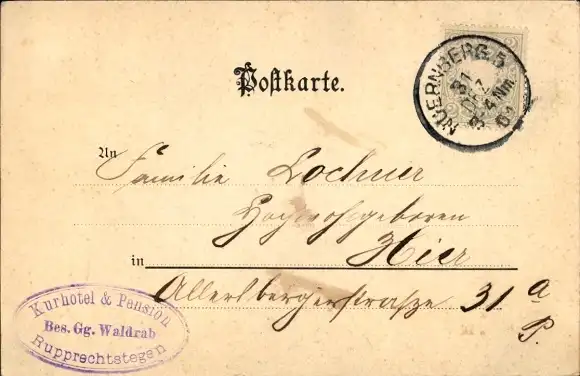 Postkarte.
NUERNBERG. 5
31
3-4 Nm
An Familie Lochner
Hochwohlgeboren
in Hier
Allersbergerstraße 31 a
P.
Kurhotel & Pension
Bes. Gg. Waldrab
Rupprechtstegen